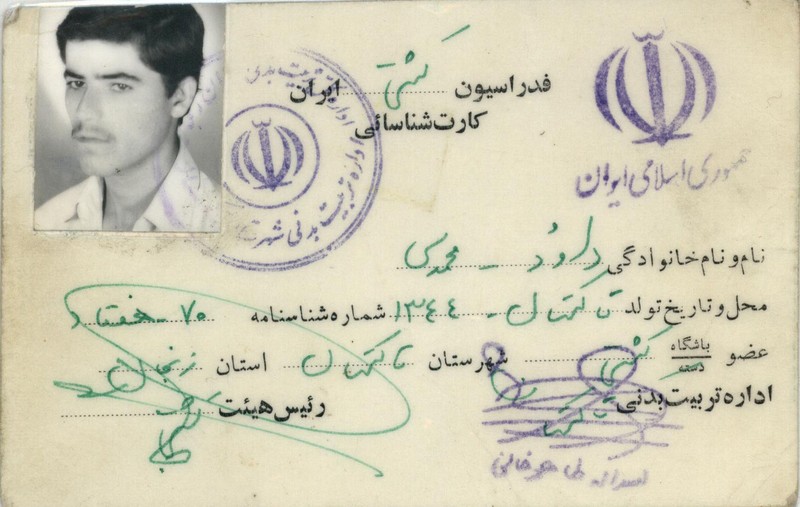 فدراسیون کشتی ایران
کارت شناسائی
جمهوری اسلامی ایران
اداره تربیت بدنی
نام و نام خانوادگی داود - محمدی
محل و تاریخ تولد تاکستان - ۱۳۴۴ شماره شناسنامه ۷۰ - هفتاد
عضو باشگاه دسته کشتی شهرستان تاکستان استان زنجان
اداره تربیت بدنی رئیس هیئت
طاهرخانی